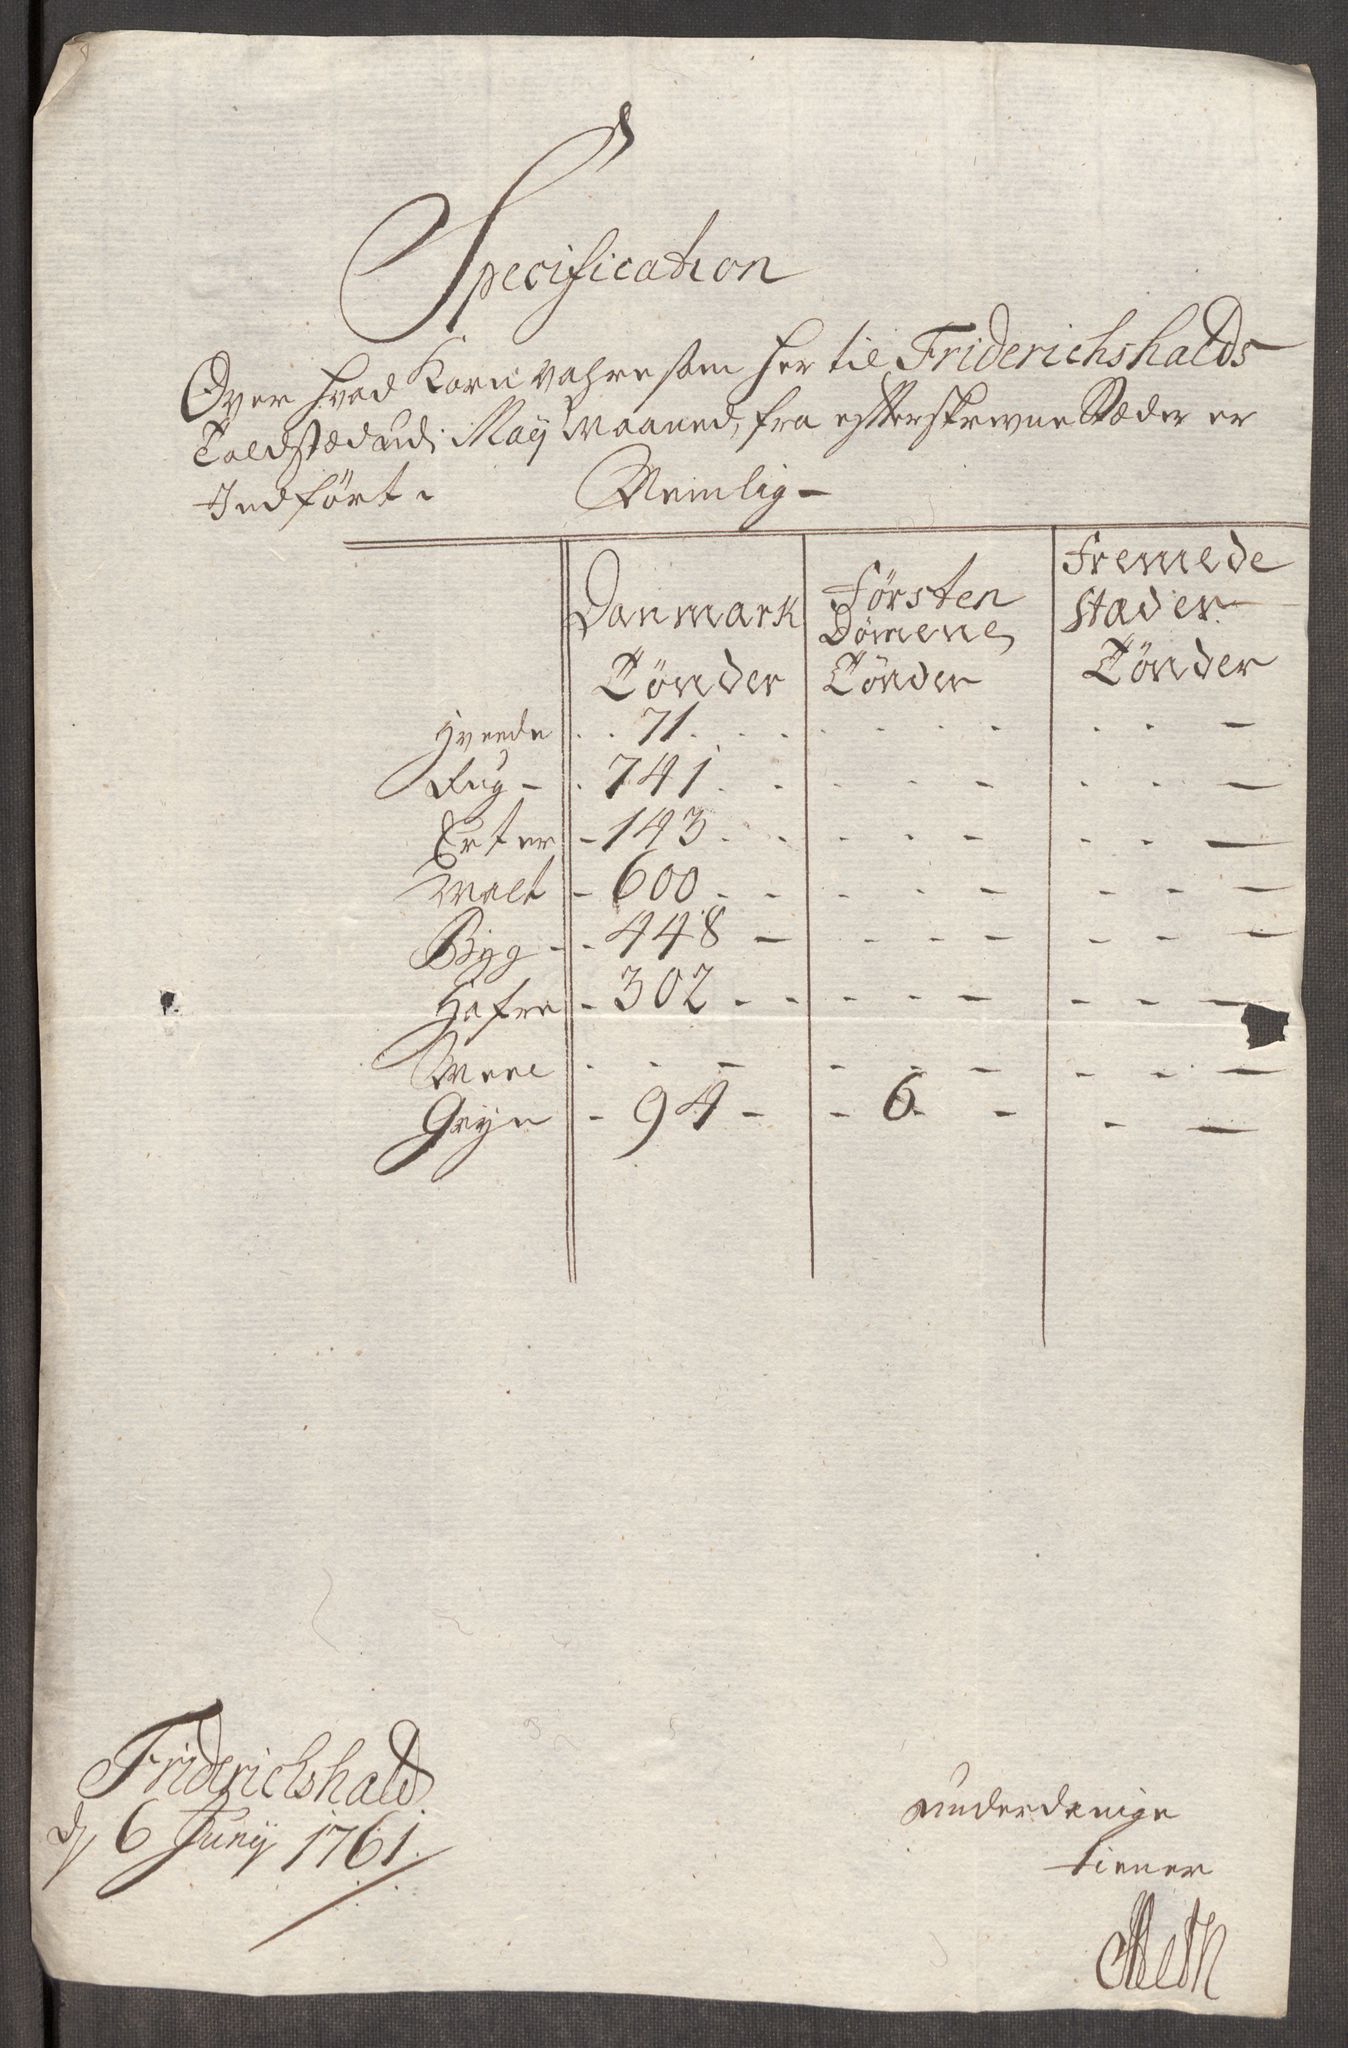 Specification
Over hvad Korn vahre som her til Friderichshalds
Toldstæd udi Maij Maaned, fra efterskrevne Stæder er
Indført. Nemlig
Danmark Førsten Fremede
Dømene stæder
Tønder Tønder Tønder
Hvede 71
Rug 741
Erter 143
Malt 600
Byg 448
Hafre 302
Meel
Gryn 94 6
Friderichshald
d 6 Junij 1761
underdanige
tiener